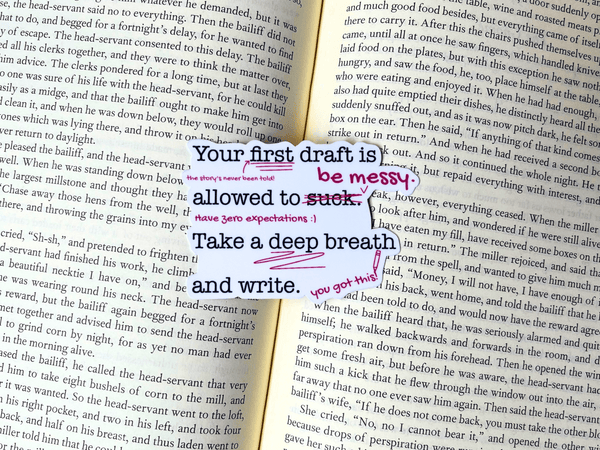 whatever he demanded, but it was
the head-servant said no to everything. Then the bailiff did
to do, and begged for a fortnight's delay, for he wanted to find
of escape. The head-servant consented to this delay. The bailiff
all his clerks together, and they were to think the matter over,
him advice. The clerks pondered for a long time, but at last they
no one was sure of his life with the head-servant, for he could kill
easily as a midge, and that the bailiff ought to make him get into
clean it, and when he was down below, they would roll up one
which was lying there, and throw it on his
return to daylight.
pleased the bailiff, and the head-servant was
When he was standing down below
the largest millstone and thought they ha
"Chase away those hens from the well, t
there, and throwing the grains into my ey
cried, "Sh-sh," and pretended to frighten t
servant had finished his work, he climb
a beautiful necktie I have on," and be
was wearing round his neck. The
reward, but the bailiff again begged for a fortnight's
together and advised him to send the head-servant
to grind corn by night, for as yet no man had ever
in the morning alive.
the bailiff, he called the head-servant that very
him to take eight bushels of corn to the mill, and
it was wanted. So the head-servant went to the loft,
his right pocket, and two in his left, and took four
back, and half on his breast, and thus laden went to
miller told him that he could
Your first draft is
the story's never been told!
be messy.
allowed to suck.
Have zero expectations :)
Take a deep breath
and write.
you got this!
table, wine and roasted meats
and much good food besides, but everything came of itself
there to carry it. After this the chairs pushed themselves up
came, until all at once he saw fingers, which handled knives
laid food on the plates, but with this exception he saw noth
hungry, and saw the food, he, too, place himself at the table,
who were eating and enjoyed it. When he had had enough,
also had quite emptied their dishes, he distinctly heard all the
suddenly snuffed out, and as it was now pitch dark, he felt som
box on the ear. Then he said, "If anything of that kind comes
strike out in return." And when he had received a second
out. And so it continued the whole night. He
but repaid everything with interest, and
however, everything ceased. When the miller
look after him, and wondered if he were still alive
have eaten my fill, have received some boxes on the
in return." The miller rejoiced, and said tha
from the spell, and wanted to give him
said, "Money, I will not have, I have enough of
his back, went home, and told the bailiff that he h
had been told to do, and would now have the reward agre
When the bailiff heard that, he was seriously alarmed and quit
himself; he walked backwards and forwards in the room, and d
perspiration ran down from his forehead. Then he opened the win
get some fresh air, but before he was aware, the head-servant had
him such a kick that he flew through the window out into the air,
far away that no one ever saw him again. Then said the head-servant
bailiff's wife, "If he does not come back, you must take the other blo
She cried, "No, no I cannot bear it," and opened the other
because drops of perspiration were
gave her such